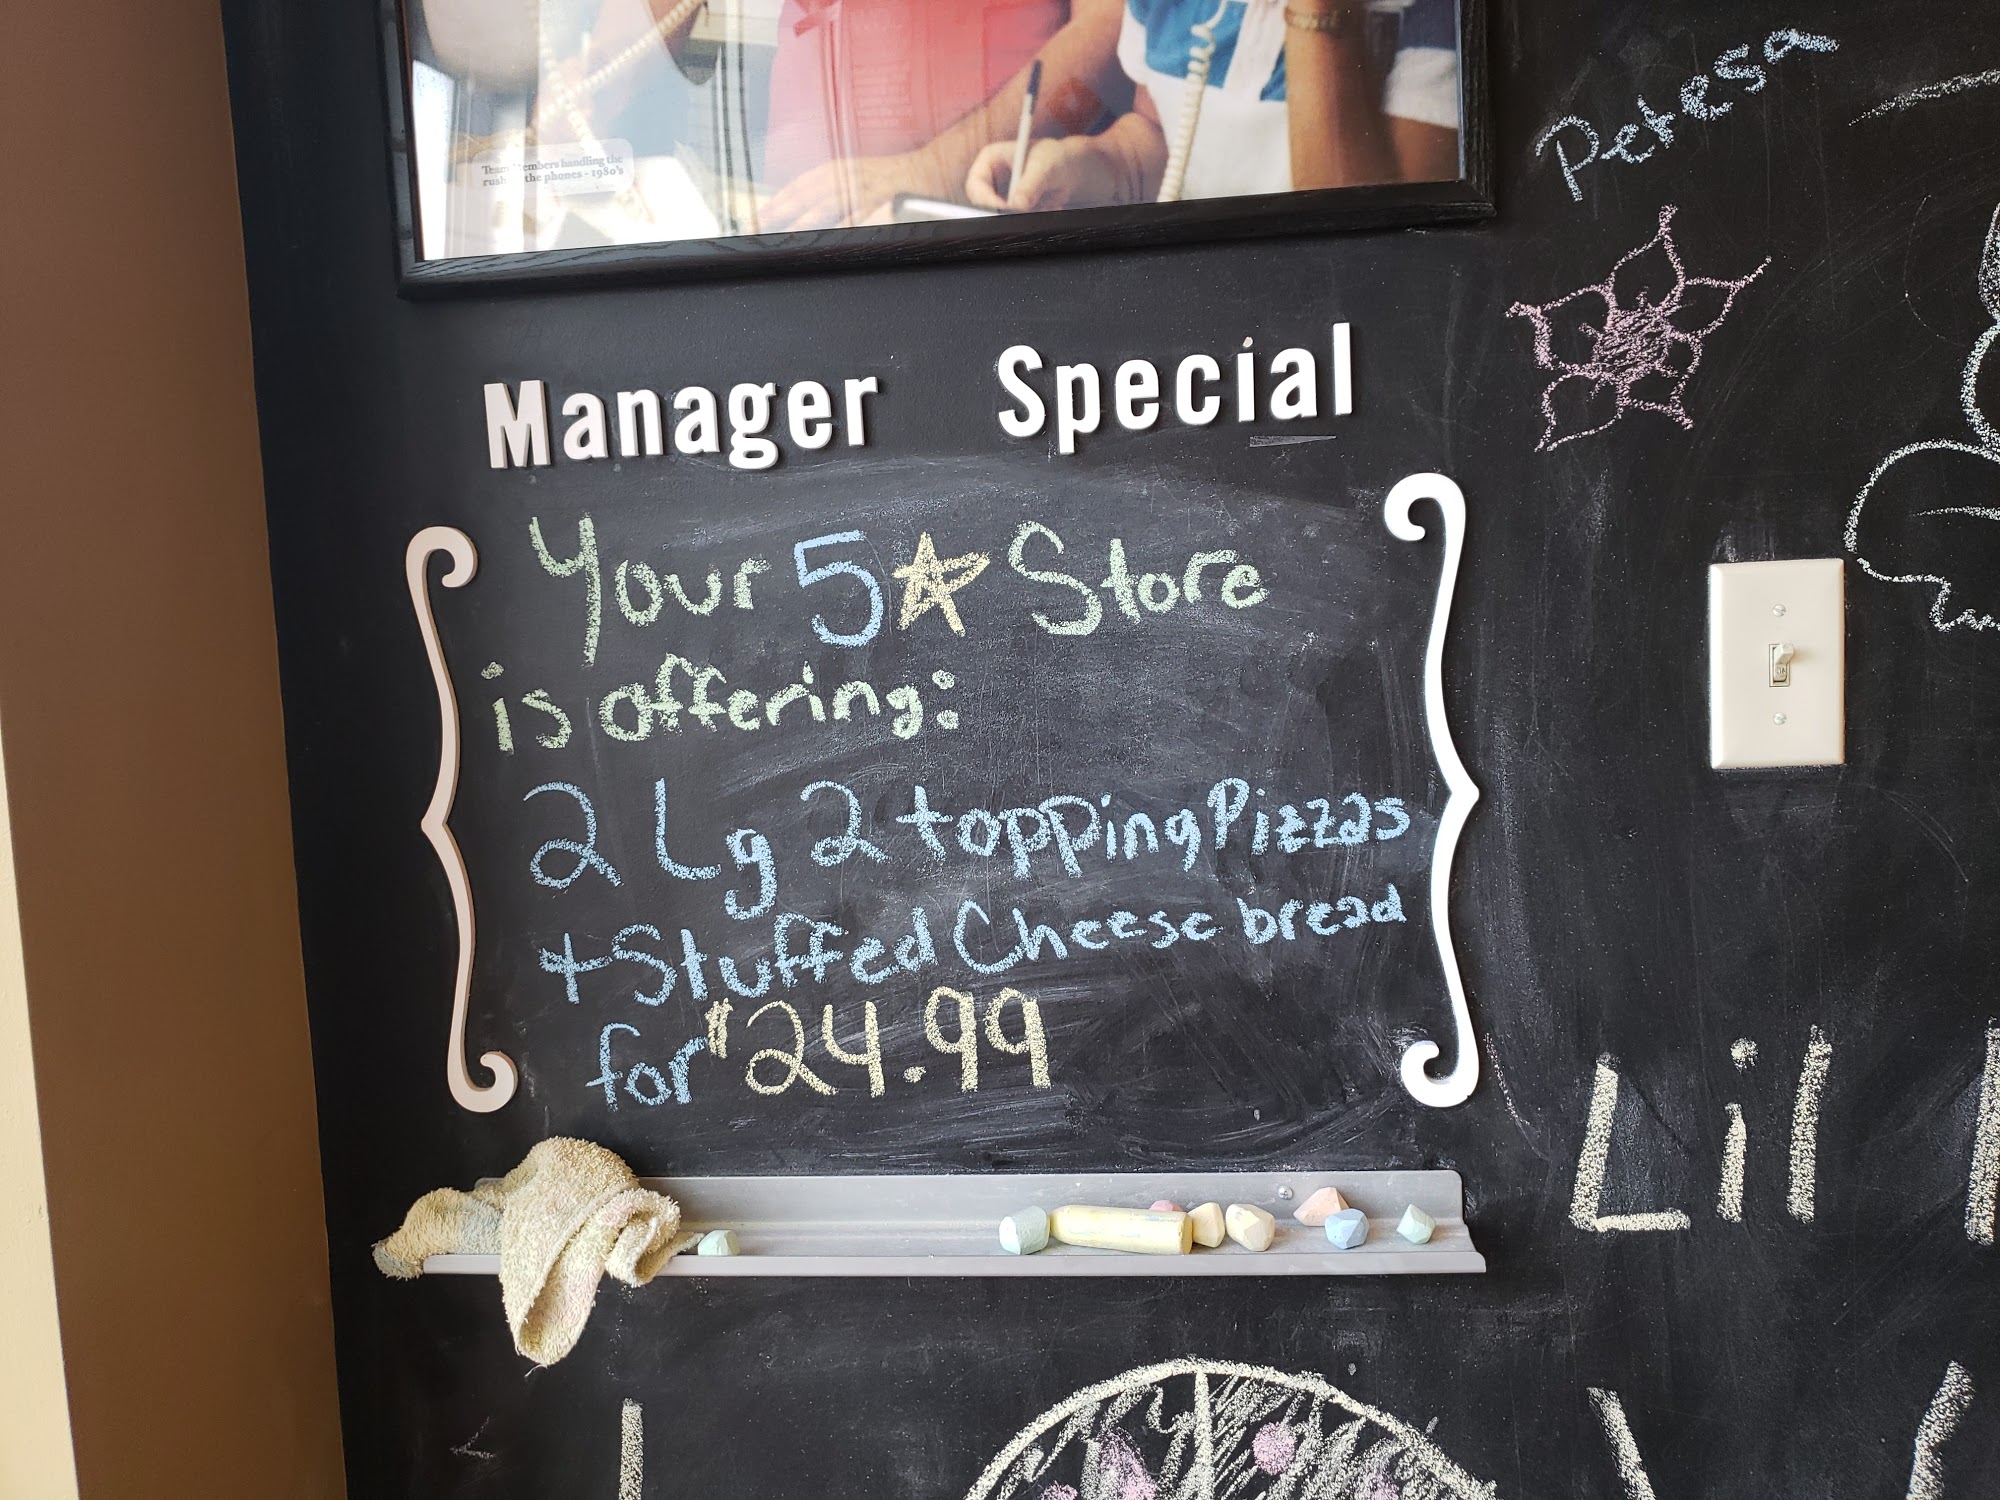 Team Members handling the
rush the phones - 1980's
Peresa
Manager Special
Your 5☆ Store
is offering:
2 Lg 2 topping Pizzas
+ Stuffed Cheese bread
for $24.99
Lil